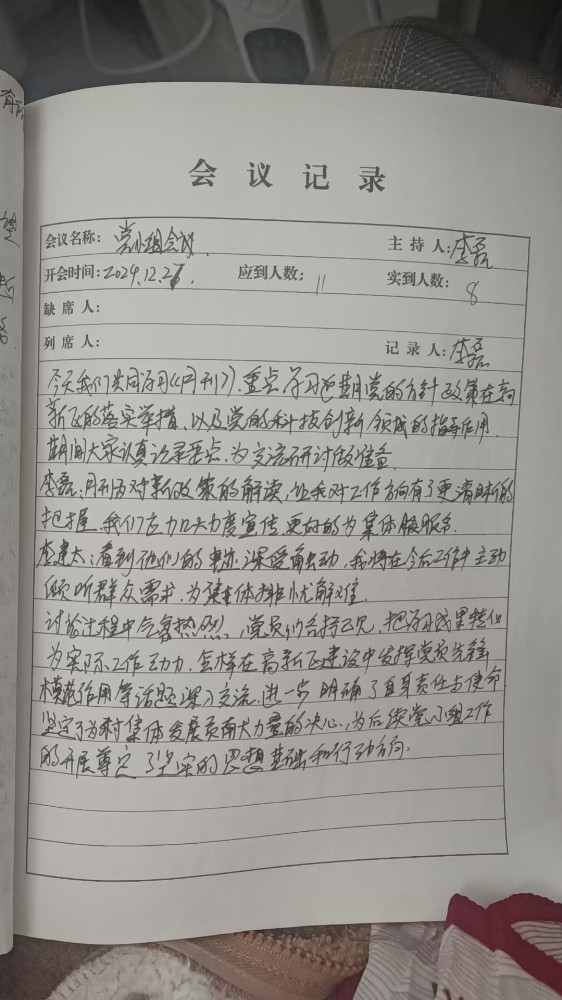 会议记录
会议名称：党小组会议 主持人：李磊
开会时间：2024.12.27. 应到人数：11 实到人数：8
缺席人：
列席人： 记录人：李磊
今天我们共同学习《月刊》，重点学习近期党的方针政策在高
新区的落实举措，以及党的科技创新领域的指导作用。
期间大家认真记录要点，为交流研讨做准备。
李磊：月刊内对新政策的解读，让我对工作方向有了更清晰的
把握，我们应加大力度宣传，更好的为集体服务。
李建太：看到他们的事迹，深受触动，我将在今后工作中主动
倾听群众需求，为集体排忧解难。
讨论过程中气氛热烈，党员们各抒己见，把学习成果转化
为实际工作动力，怎样在高新区建设中发挥党员先锋
模范作用等话题深入交流，进一步明确了自身责任与使命
坚定了为村集体发展贡献力量的决心，为后续党小组工作
的开展尊定了坚实的思想基础和行动方向。